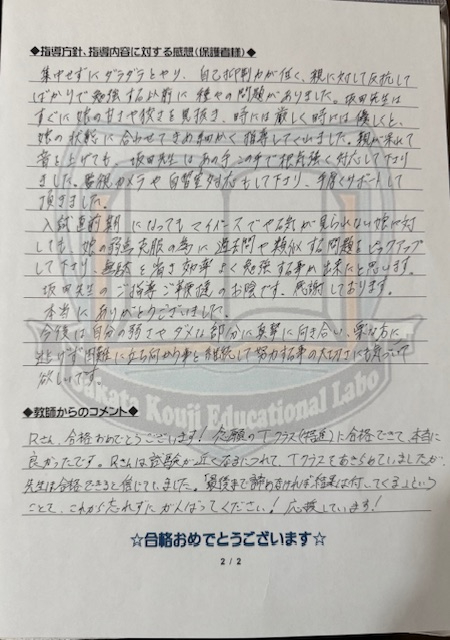 ◆指導方針、指導内容に対する感想(保護者様)◆
集中せずにダラダラとやり、自己抑制力が低く、親に対して反抗して
ばかりで勉強する以前に種々の問題がありました。坂田先生は
すぐに娘の甘さや狡さを見抜き、時には厳しく時には優しくと、
娘の状態に合わせてきめ細かく指導してくれました。親が呆れて
音を上げても、坂田先生はあの手この手で根気強く対応して下さり
ました。監視カメラや自習室対応もして下さり、手厚くサポートして
頂きました。
入試直前期になってもマイペースでやる気が見られない娘に対
しても、娘の弱点克服の為に過去問や類似する問題をピックアップ
して下さり、無駄を省き効率よく勉強する事が出来たと思います。
坂田先生のご指導ご鞭撻のお陰です。感謝しております。
本当にありがとうございました。
今後は自分の弱さやダメな部分に真摯に向き合い、楽な方に
逃げず困難に立ち向かう事を継続して努力する事の大切さにも
欲しいです。
Sakata Kouji Educational Labo
◆教師からのコメント◆
Rさん、合格おめでとうございます!念願のTクラス(特進)に合格できて、本当に
良かったです。Rさんは試験が近くなるにつれて、Tクラスをあきらめていましたが、
先生は合格できると信じていました。「最後まで諦めなければ結果は付いてくる」という
ことを、これから忘れずにがんばってください!応援しています!
☆合格おめでとうございます☆
2 / 2